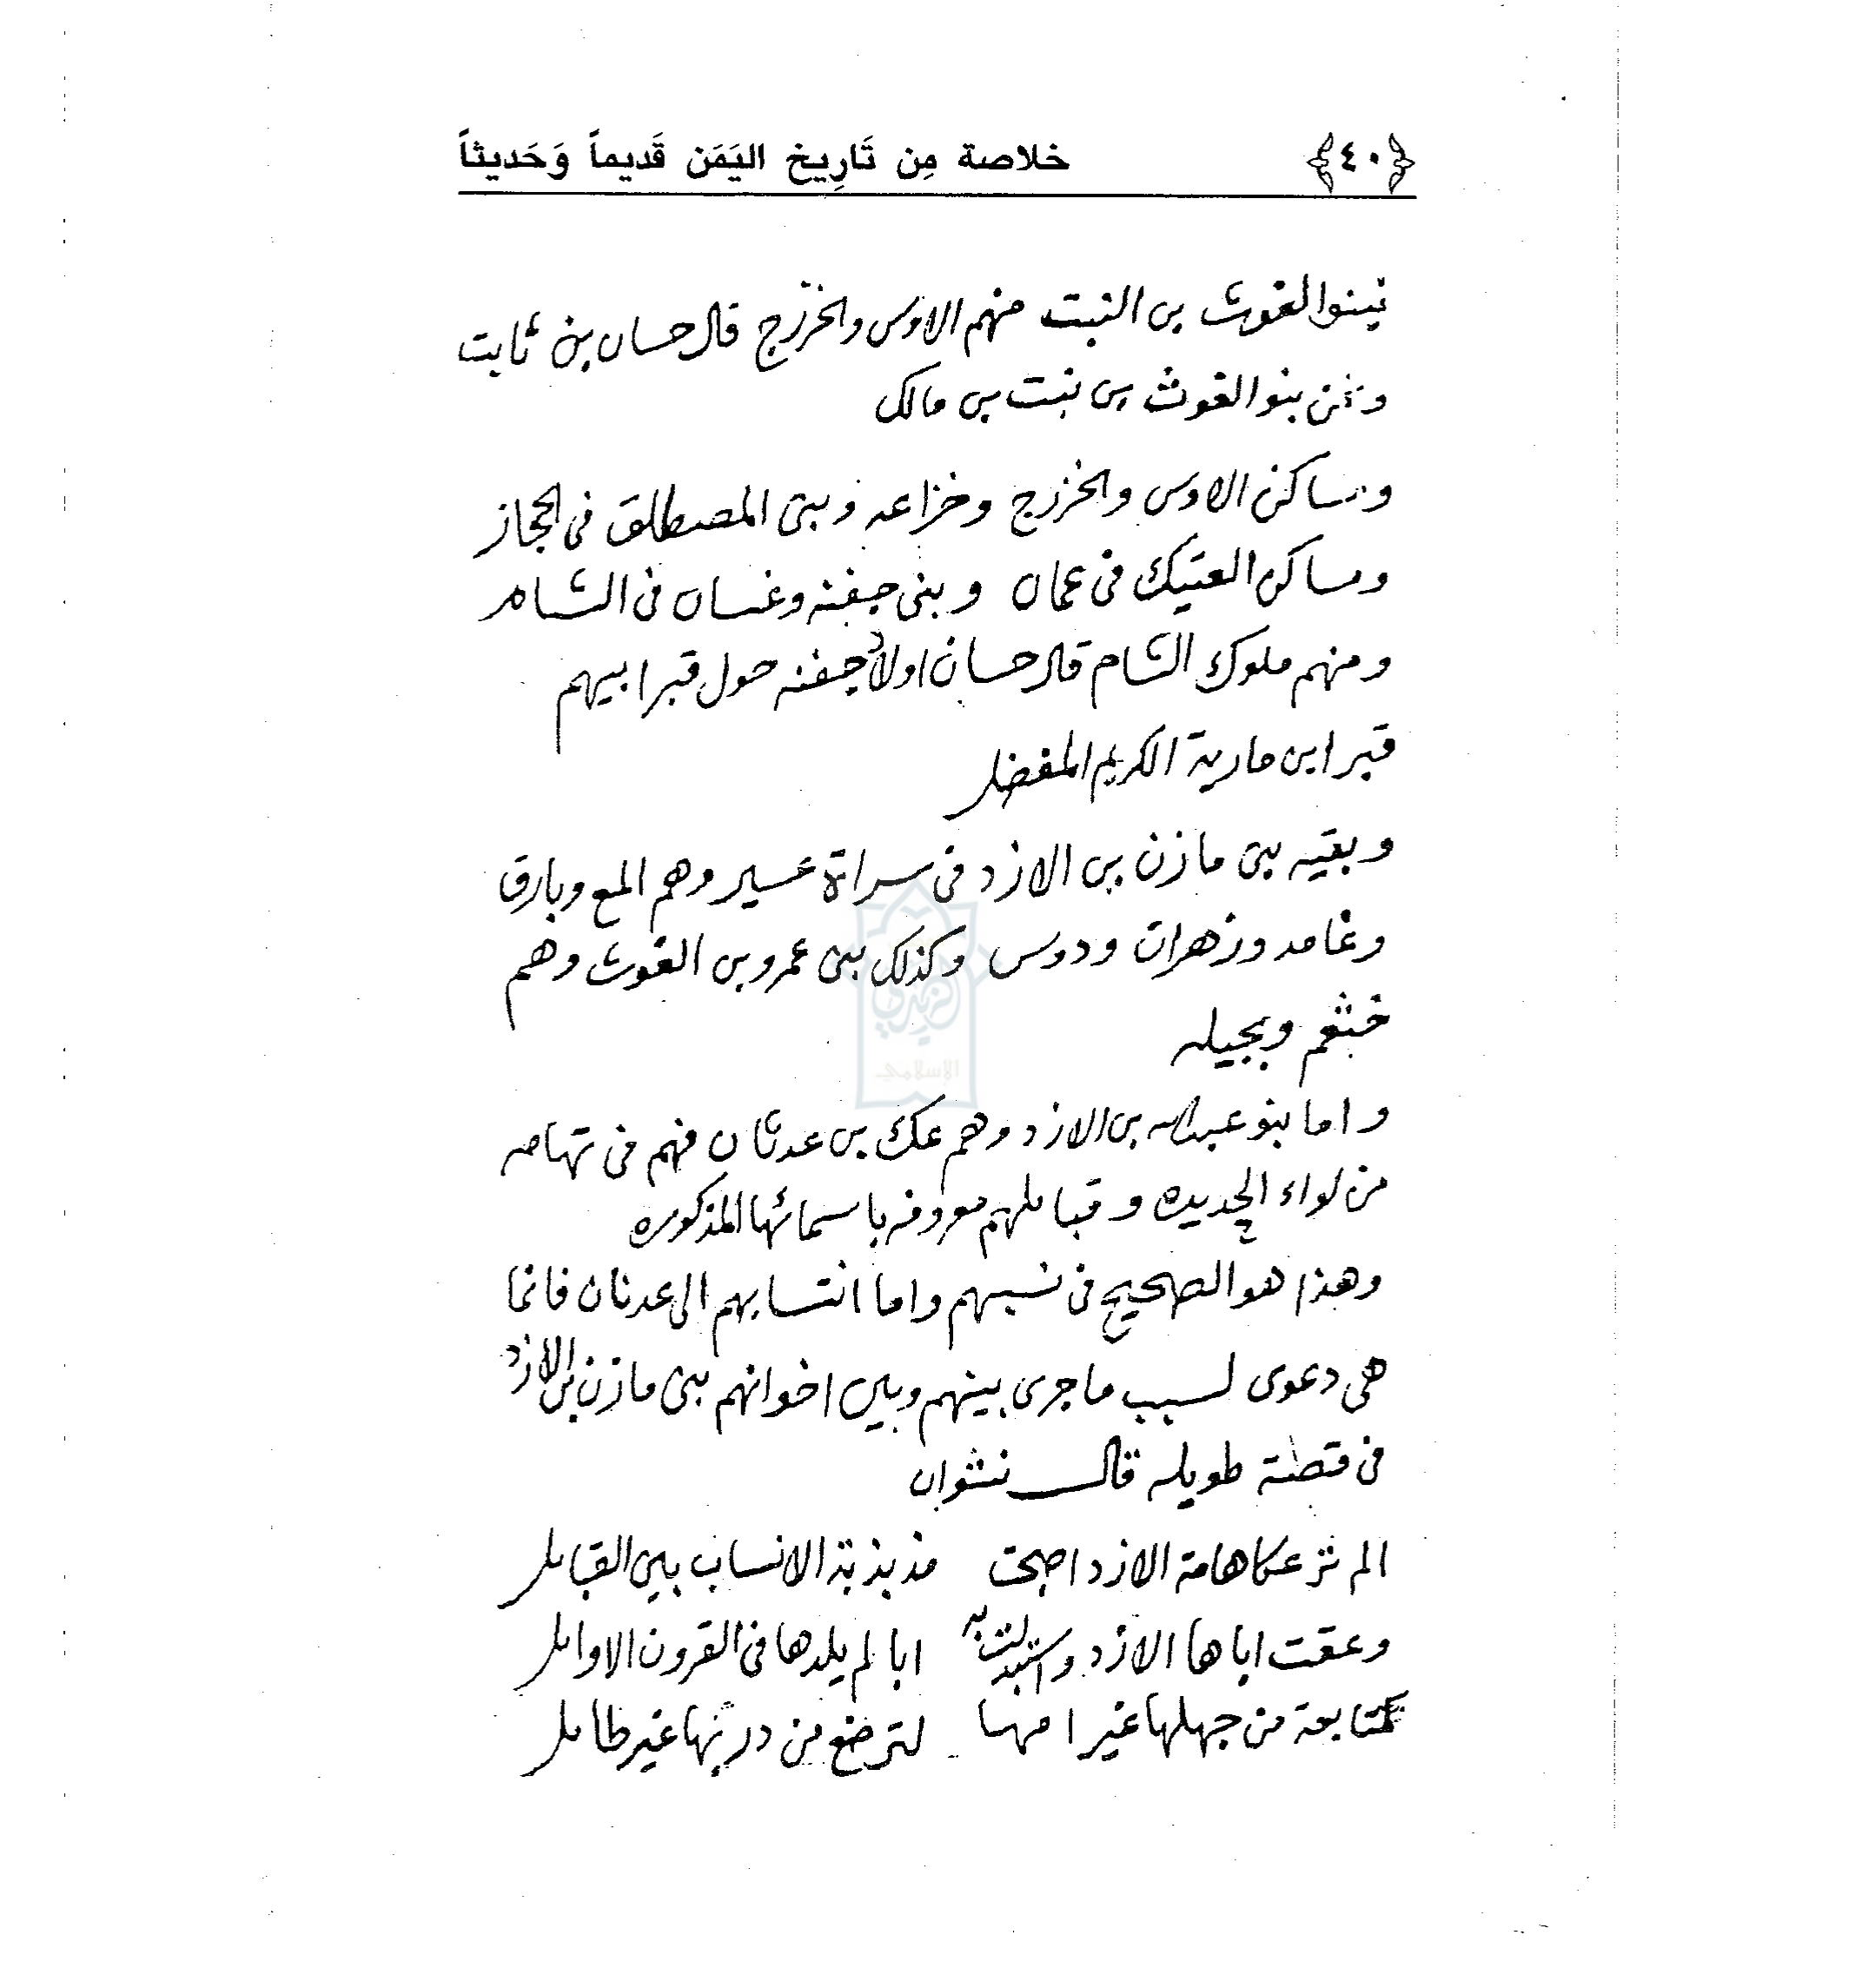 ﴿٤٠﴾ خلاصة مِن تَارِيخ اليَمَن قَديماً وَحَديثاً
فبنوا الغوث بن النبت منهم الاوس والخزرج قال حسان بن ثابت
ونحن بنو الغوث بن نبت بن مالك
ومساكن الاوس والخزرج وخزاعه وبني المصطلق في الحجاز
ومساكن العتيك في عمان وبني جفنه وغسان في الشام
ومنهم ملوك الشام قال حسان اولاد جفنه حول قبر ابيهم
قبر ابن مارية الكريم المفضل
وبقيه بني مازن بن الازد في سراة عسير وهم المع وبارق
وغامد وزهران ودوس وكذلك بني عمرو بن الغوث وهم
خثعم وبجيله
واما بنو عبدالله بن الازد وهم عك بن عدثان فهم في تهامه
من لواء الحديده وقبايلهم معروفه باسمائها المذكوره
وهذا هو الصحيح في نسبهم واما انتسابهم الى عدنان فانما
هي دعوى لسبب ما جرى بينهم وبين اخوانهم بني مازن بن الازد
في قصة طويله قال نشوان
الم تر عكا هامة الازد اصبحت مذبذبة الانساب بين القبايل
وعقت اباها الازد واستبدلت به ابا لم يلدها في القرون الاوايل
كتابعة من جهلها غير امها لترضع من در بها غير طايل
الزيدي
الإسلامي